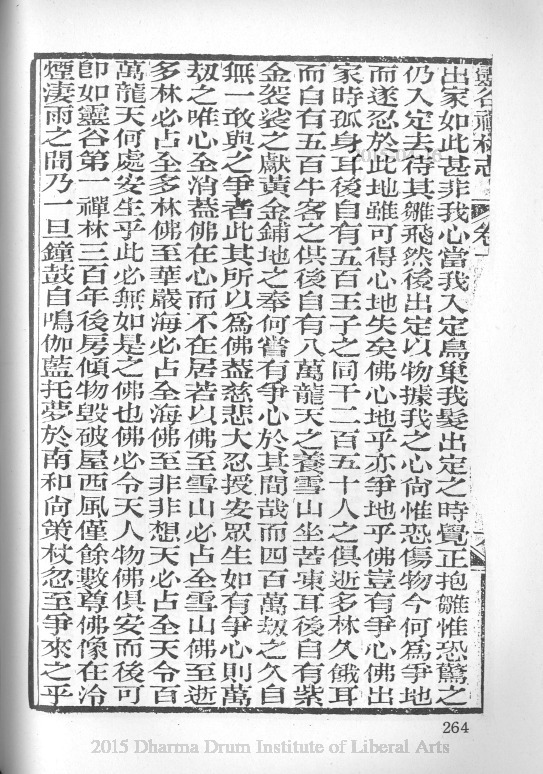 靈谷禪林志
卷十
出家如此甚非我心當我入定鳥巢我髮出定之時覺正抱雛惟恐驚之
仍入定去待其雛飛然後出定以物據我之心尚惟恐傷物今何爲爭地
而遂忍於此地雖可得心地失矣佛心地乎亦爭地乎佛豈有爭心佛出
家時孤身耳後自有五百王子之同千二百五十人之俱逝多林久餓耳
而自有五百牛客之供後自有八萬龍天之養雪山坐苦凍耳後自有紫
金袈裟之獻黃金鋪地之奉何嘗有爭心於其間哉而四百萬刼之久自
無一敢與之爭者此其所以爲佛葢慈悲大忍授安眾生如有爭心則萬
刼之唯心全消葢佛在心而不在居若以佛至雪山必占全雪山佛至逝
多林必占全多林佛至華嚴海必占全海佛至非非想天必占全天令百
萬龍天何處安生乎此必無如是之佛也佛必令天人物佛俱安而後可
卽如靈谷第一禪林三百年後房傾物毀破屋西風僅餘數尊佛像在冷
煙淒雨之間乃一旦鐘鼓自鳴伽藍托夢於南和尚策杖忽至爭來之乎
264
2015 Dharma Drum Institute of Liberal Arts